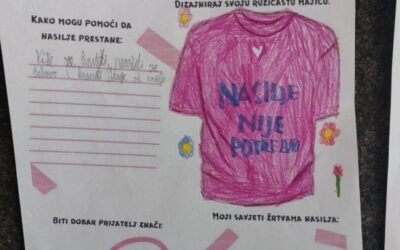 DIZAJNIRAJ SVOJU RUŽIČASTU MAJICU:
KAKO MOGU POMOĆI DA
NASILJE PRESTANE:
NASILJE
NIJE
POTREBNO
BITI DOBAR PRIJATELJ ZNAČI:
MOJI SAVJETI ŽRTVAMA NASILJA: